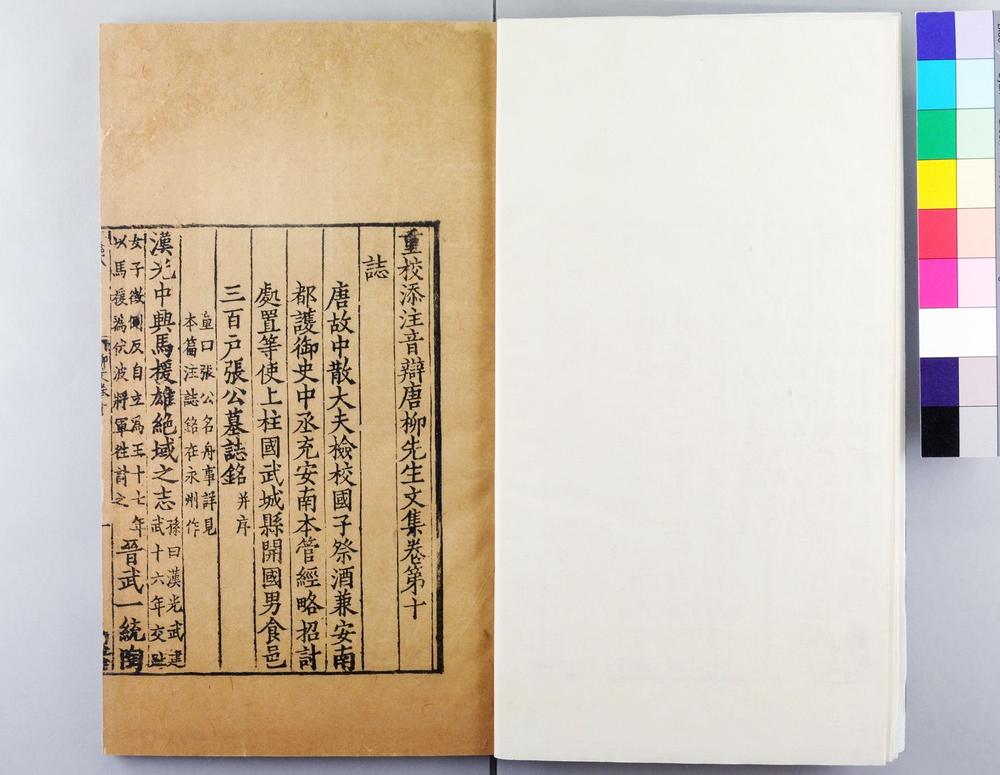 重校添注音辯唐柳先生文集卷第十
誌
唐故中散大夫檢校國子祭酒兼安南
都護御史中丞充安南本管經略招討
處置等使上柱國武城縣開國男食邑
三百戶張公墓誌銘并序
童曰張公名舟事詳見
本篇注誌銘在永州作
漢光中興馬援雄絶域之志孫曰漢光武建
武十六年交趾
女子徵側反自立爲王十七年
以馬援爲伏波將軍徃討之
晉武一統陶